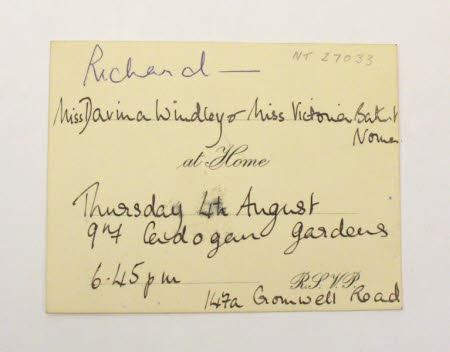 Richard — NT 27033
Miss Davina Windley & Miss Victoria
Norman
at Home
Thursday 4th August
Cadogan Gardens
6.45pm R.S.V.P.
147a Cromwell Road